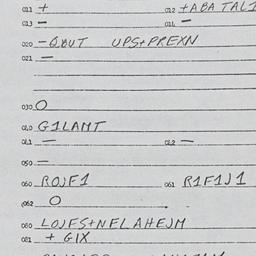 011 + 012 + ABA TAL1
013 — 014 —
020 — QBUT UPS+PREXN
021 —
030 O
040 G1LANT
041 — 042 —
050 —
060 ROJF1 061 R1F1J1
062 O
080 LOJFS+NFLAHEJM
081 + GIX